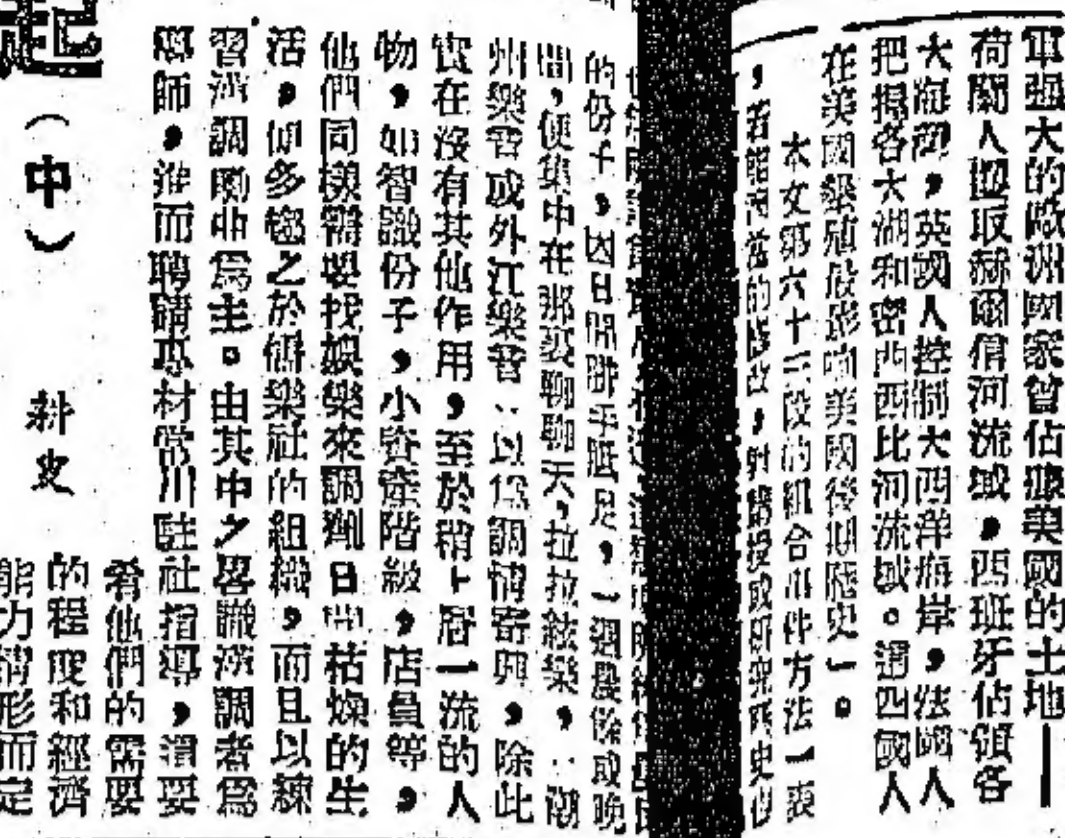 軍强大的歐洲國家曾佔據美國的土地——
荷蘭人攫取赫爾信河流域，西班牙佔領各
大海灣，英國人控制大西洋海岸，法國人
把握各大湖和密西西比河流域。這四國人
在美國墾殖影响美國後期歷史」。
本文第六十三段的組合 件方法一表
，若能 當的修改，對講授或研究 史
的份子，因日間胼手胝足，一週 餘或晚
間，便集中在那裏聊聊天，拉拉絃樂，：潮
州樂書或外江樂書：以 調情寄興，除此
實在沒有其他作用，至於稍上層一流的人
物，如智識份子，小資產階級，店員等，
他們同樣需要找娛樂來調劑日 枯燥的生
活，傾多 之於儒樂社的組織，而且以練
習漢調 曲爲主。由其中之畧識漢調者爲
導師，進而聘請專材常川駐社指導，
看他們的需要
的程度和經濟
能力情形而定
起（中） 耕史